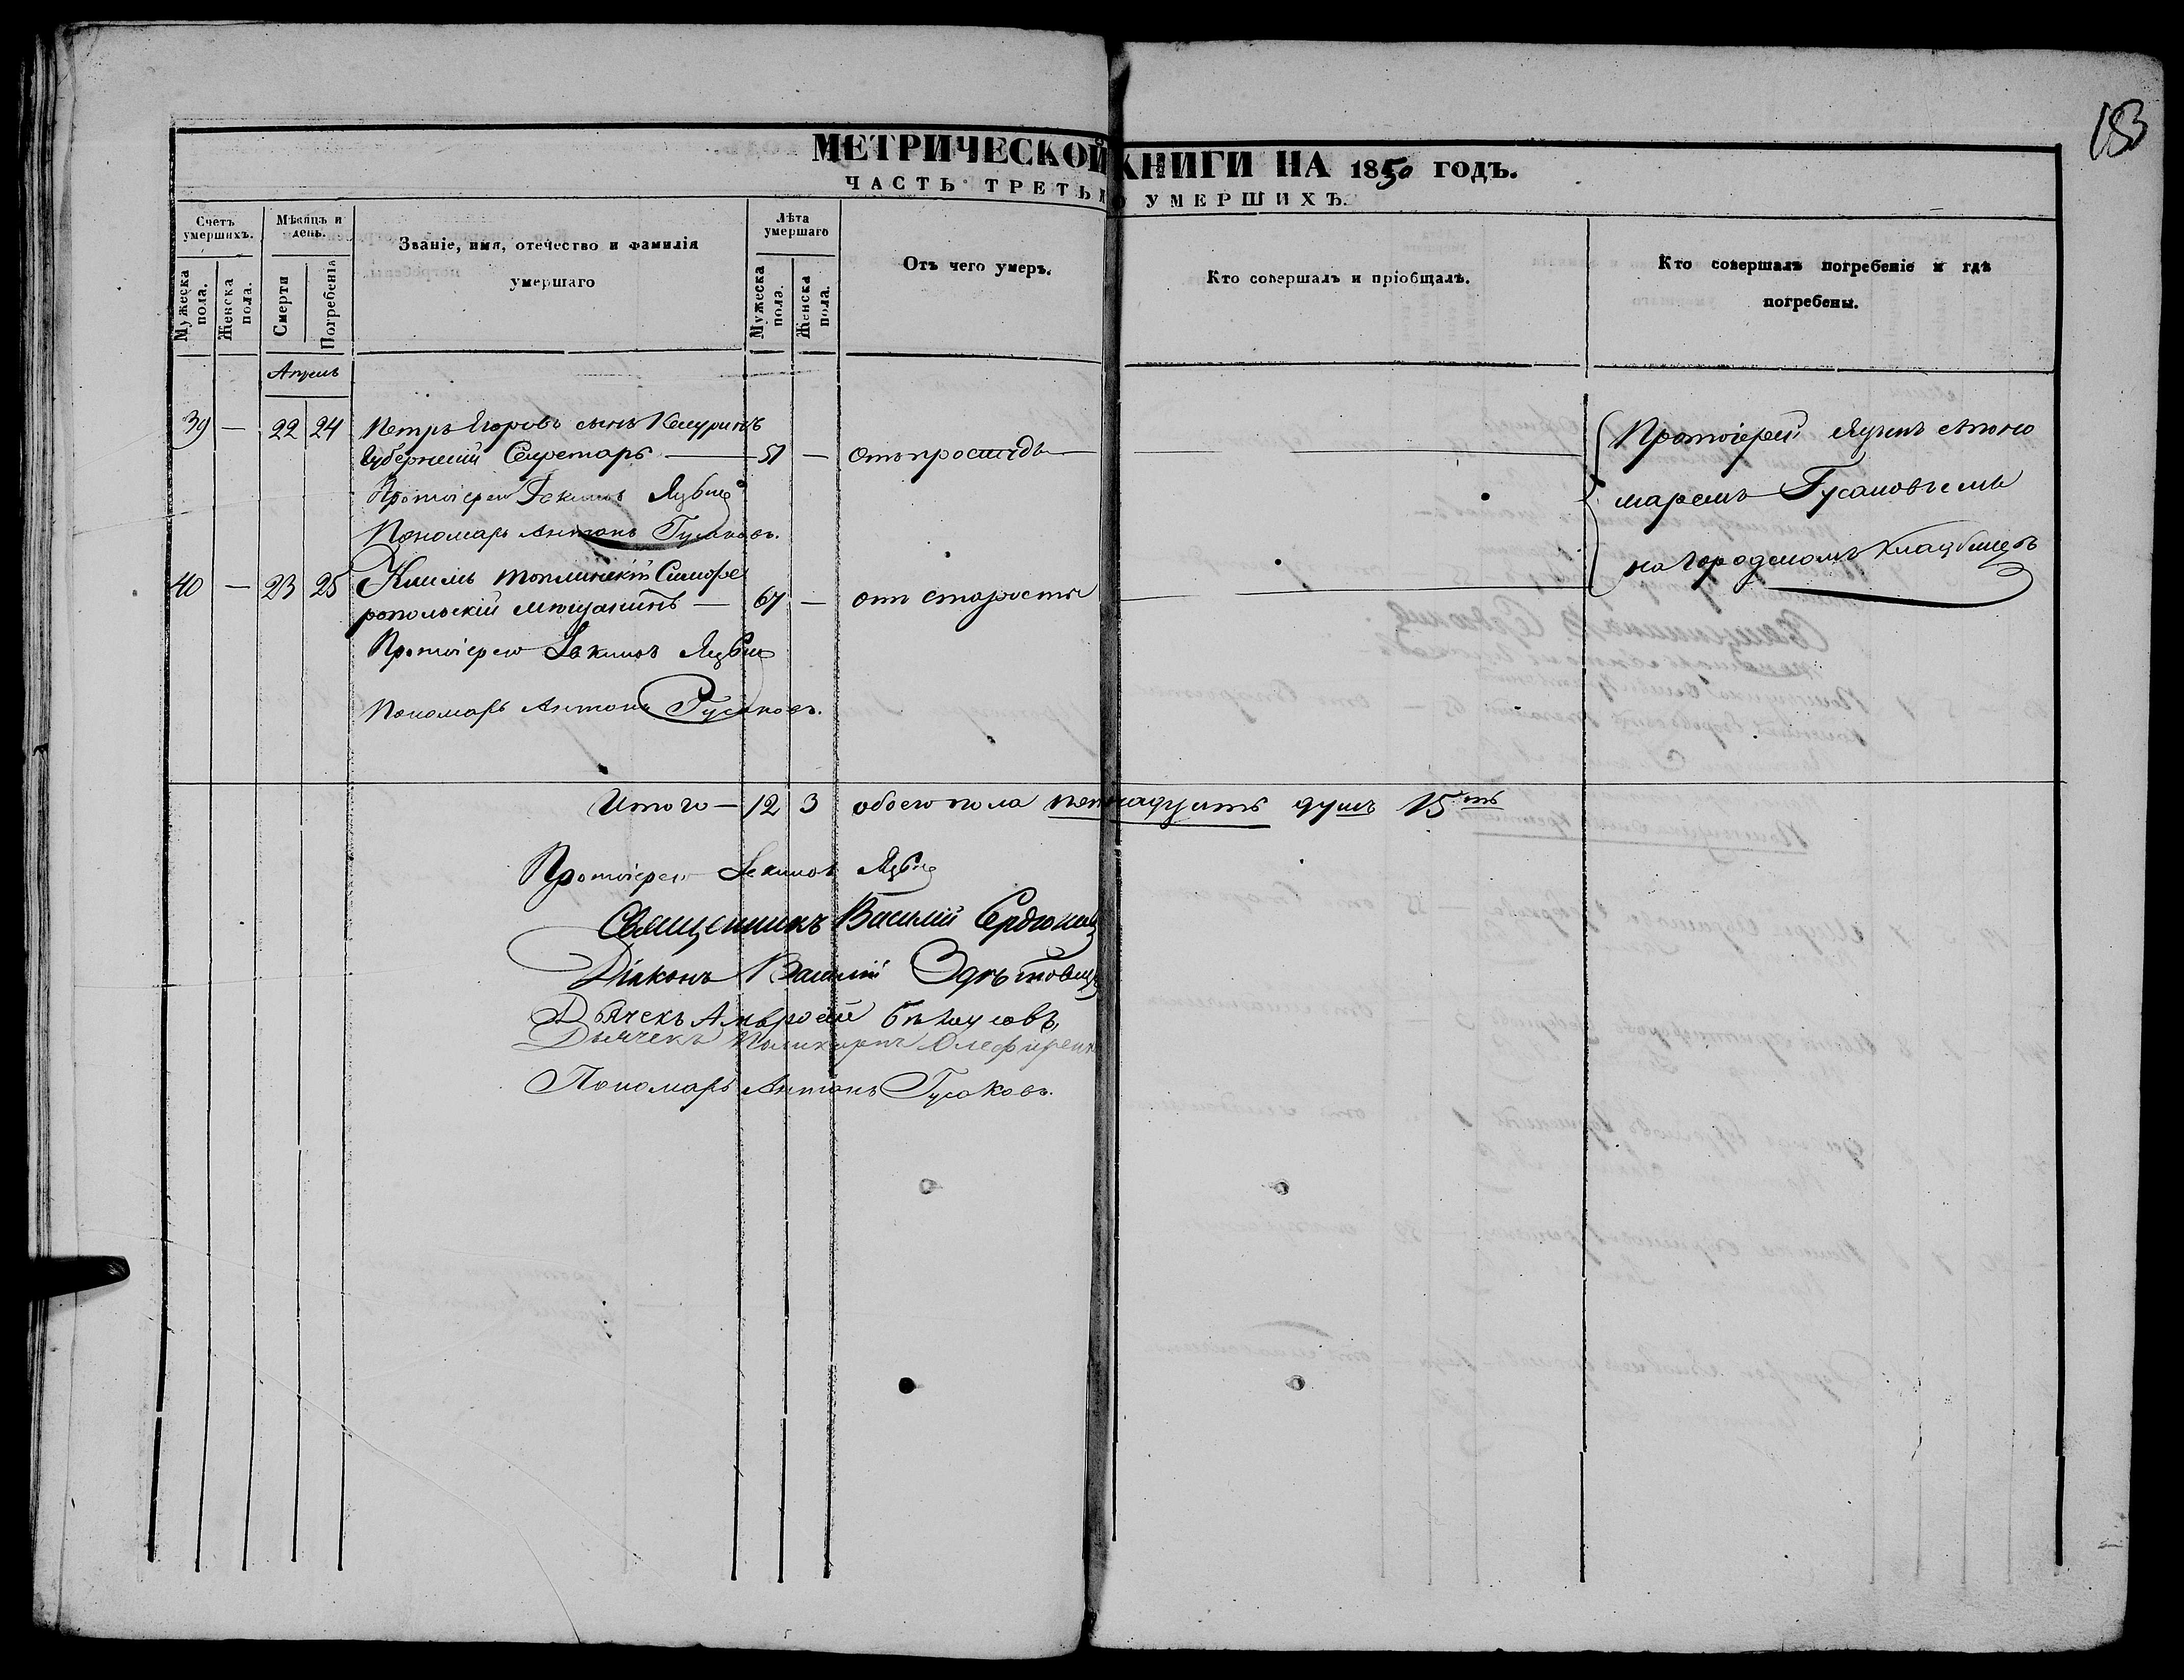 183
МЕТРИЧЕСКОЙ КНИГИ НА 1850 ГОДЪ.
ЧАСТЬ ТРЕТЬЯ О УМЕРШИХЪ.
Счетъ умершихъ.
Мужеска пола.
Женска пола.
Мѣсяцъ и день.
Смерти
Погребенія
Званіе, имя, отечество и фамилія
умершаго
Лѣта умершаго
Мужеска пола.
Женска пола.
Отъ чего умеръ.
Кто совершалъ и пріобщалъ.
Кто совершалъ погребеніе и гдѣ
погребены.
Апрель
39 — 22 24 Петръ Егоровъ сынъ
Губернскій Секретарь — 51 — отъ простуды
Протоіерей
Пономарь Антонъ Гусаковъ.
Протоіерей
Гусаковъемъ
на Городскомъ кладбищѣ
40 — 23 25 Симфе
ропольскій мѣщанинъ — 67 — отъ старости
Протоіерей
Пономарь Антонъ Гусаковъ.
Итого — 12 3 обоего пола пятнадцать душъ 15ть
Протоіерей
Священникъ Василій
Діаконъ Василій
Дьячекъ Амвросій
Дьячекъ Поликарпъ Олефиренк
Пономарь Антонъ Гусаковъ.